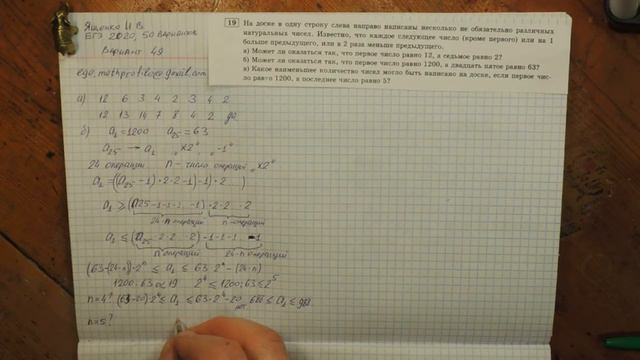 Ященко И.В.
ЕГЭ 2020, 50 вариантов
Вариант 49
ege.mathprofi@gmail.com
19 На доске в одну строку слева направо написаны несколько не обязательно различных
натуральных чисел. Известно, что каждое следующее число (кроме первого) или на 1
больше предыдущего, или в 2 раза меньше предыдущего.
а) Может ли оказаться так, что первое число равно 12, а седьмое равно 2?
б) Может ли оказаться так, что первое число равно 1200, а двадцать пятое равно 63?
в) Какое наименьшее количество чисел могло быть написано на доске, если первое чис-
ло равно 1200, а последнее число равно 5?
а) 12 6 3 4 2 3 4 2
12 13 14 7 8 4 2 да
б) a₁=1200 a₂₅=63
a₂₅ → a₁ „×2" „-1"
24 операции n - число операций „×2"
a₁=((a₂₅-1)·2·2-1)-1)·2 )
a₁ ≥ (a₂₅-1-1-1. -1)·2·2 .. 2
24-n операции n-операций
a₁ ≤ (a₂₅·2·2 ..2)-1-1-1 -1
n операций 24-n операций
(63-(24-n))·2ⁿ ≤ a₁ ≤ 63·2ⁿ-(24-n)
1200:63≈19 2⁴ ≤ 1200:63 ≤ 2⁵
n=4? (63-20)·2⁴ ≤ a₁ ≤ 63·2⁴-20 688 ≤ a₁ ≤ 988
нет
n=5?